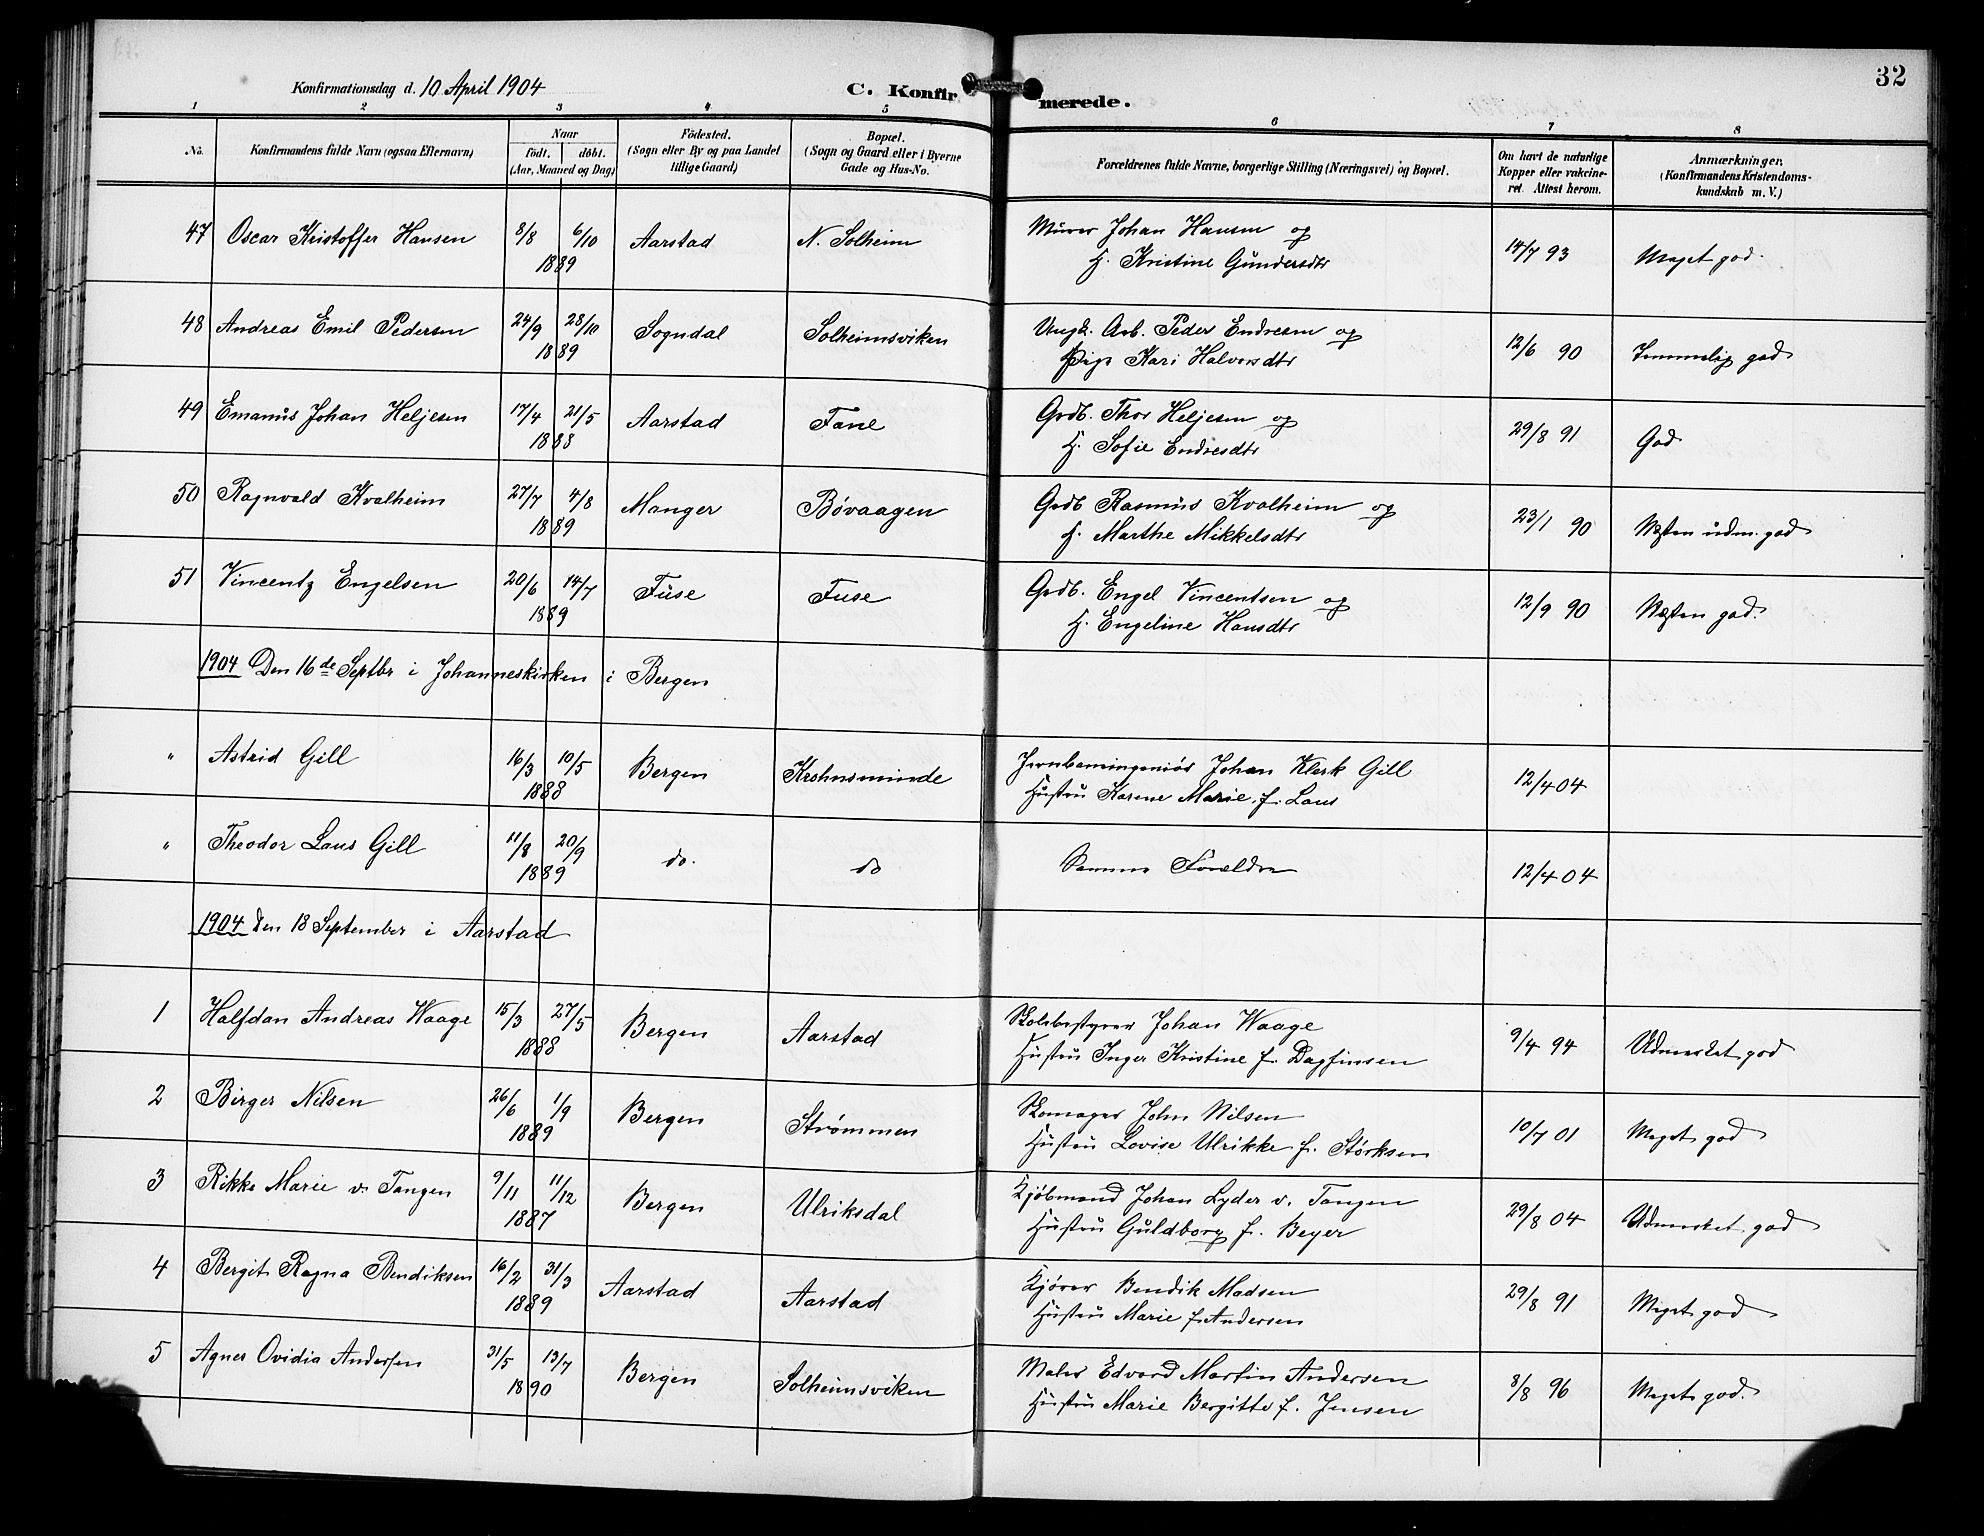 32
Konfirmationsdag d. 10 April 1904
C. Konfirmerede.
1 2 3 4 5 6 7 8
No. Konfirmandens fulde Navn (ogsaa Efternavn) Naar født. døbt. (Aar, Maaned og Dag) Fødested. (Sogn eller By og paa Landet tillige Gaard) Bopæl. (Sogn og Gaard eller i Byerne Gade og Hus-No. Forældrenes fulde Navne, borgerlige Stilling (Næringsvei) og Bopæl. Om havt de naturlige Kopper eller vakcineret. Attest herom. Anmærkninger. (Konfirmandens Kristendomskundskab m. V.)
47 Oscar Kristoffer Hansen 8/8 6/10 1889 Aarstad N. Solheim Murer Johan Hansen og
H. Kristine Gundersdtr 14/7 93 Meget god.
48 Andreas Emil Pedersen 24/9 28/10 1889 Sogndal Solheimsviken Ungk. Arb. Peder Endresen og
Pige Kari Halvorsdtr 12/6 90 Temmelig god
49 Emanus Johan Heljesen 17/4 21/5 1888 Aarstad Fane Grdb. Thor Heljesen og
H. Sofie Endresdtr 29/8 91 God
50 Ragnvald Kvalheim 27/7 4/8 1889 Manger Bövaagen Grdb Rasmus Kvalheim og
H. Marthe Mikkelsdtr 23/1 90 Næsten udm. god
51 Vincentz Engelsen 20/6 14/7 1889 Fuse Fuse Grdb. Engel Vincentsen og
H. Engeline Hansdtr 12/9 90 Næsten god.
1904 Den 16de Septbr i Johanneskirken i Bergen
" Astrid Gill 16/3 10/5 1888 Bergen Krohnsminde Jernbaneingeniør Johan Klerk Gill
Hustru Karene Marie f. Laus 12/4 04
" Theodor Laus Gill 11/8 20/9 1889 do. do Samme Forældre 12/4 04
1904 Den 18 September i Aarstad
1 Halfdan Andreas Waage 15/3 27/5 1888 Bergen Aarstad Skolebestyrer Johan Waage
Hustru Inger Kristine f. Dagfinsen 9/4 94 Udmerket god
2 Birger Nilsen 26/6 1/9 1889 Bergen Strømmen Skomager John Nilsen
Hustru Lovise Ulrikke f. Størksen 10/7 01 Meget god
3 Rikke Marie v. Tangen 9/11 11/12 1887 Bergen Ulriksdal Kjøbmand Johan Lyder v. Tangen
Hustru Guldborg f. Beyer 29/8 04 Udmerket god
4 Bergit Ragna Bendiksen 16/2 31/3 1889 Aarstad Aarstad Kjører Bendik Madsen
Hustru Marie f. Andersen 29/8 91 Meget god
5 Agner Ovidia Andersen 31/5 13/7 1890 Bergen Solheimsviken Maler Edvard Martin Andersen
Hustru Marie Bergitte f. Jensen 8/8 96 Meget god.